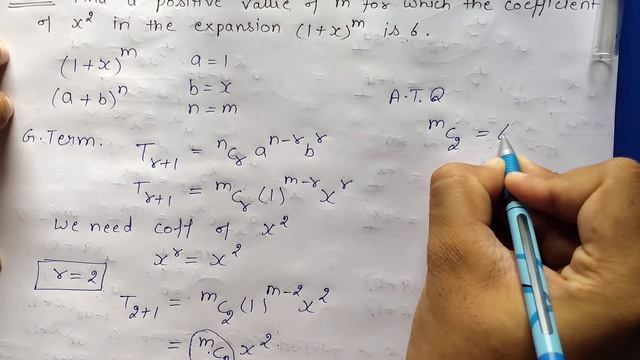 Find a positive value of m for which the coefficient
of x² in the expansion (1+x)ᵐ is 6.
(1+x)ᵐ a = 1
(a+b)ⁿ b = x
n = m
G. Term. Tᵣ₊₁ = ⁿCᵣ aⁿ⁻ʳ bʳ
Tᵣ₊₁ = ᵐCᵣ (1)ᵐ⁻ʳ xʳ
We need coff of x²
xʳ = x²
r = 2
T₂₊₁ = ᵐC₂ (1)ᵐ⁻² x²
= ᵐC₂ x².
A.T.Q
ᵐC₂ =